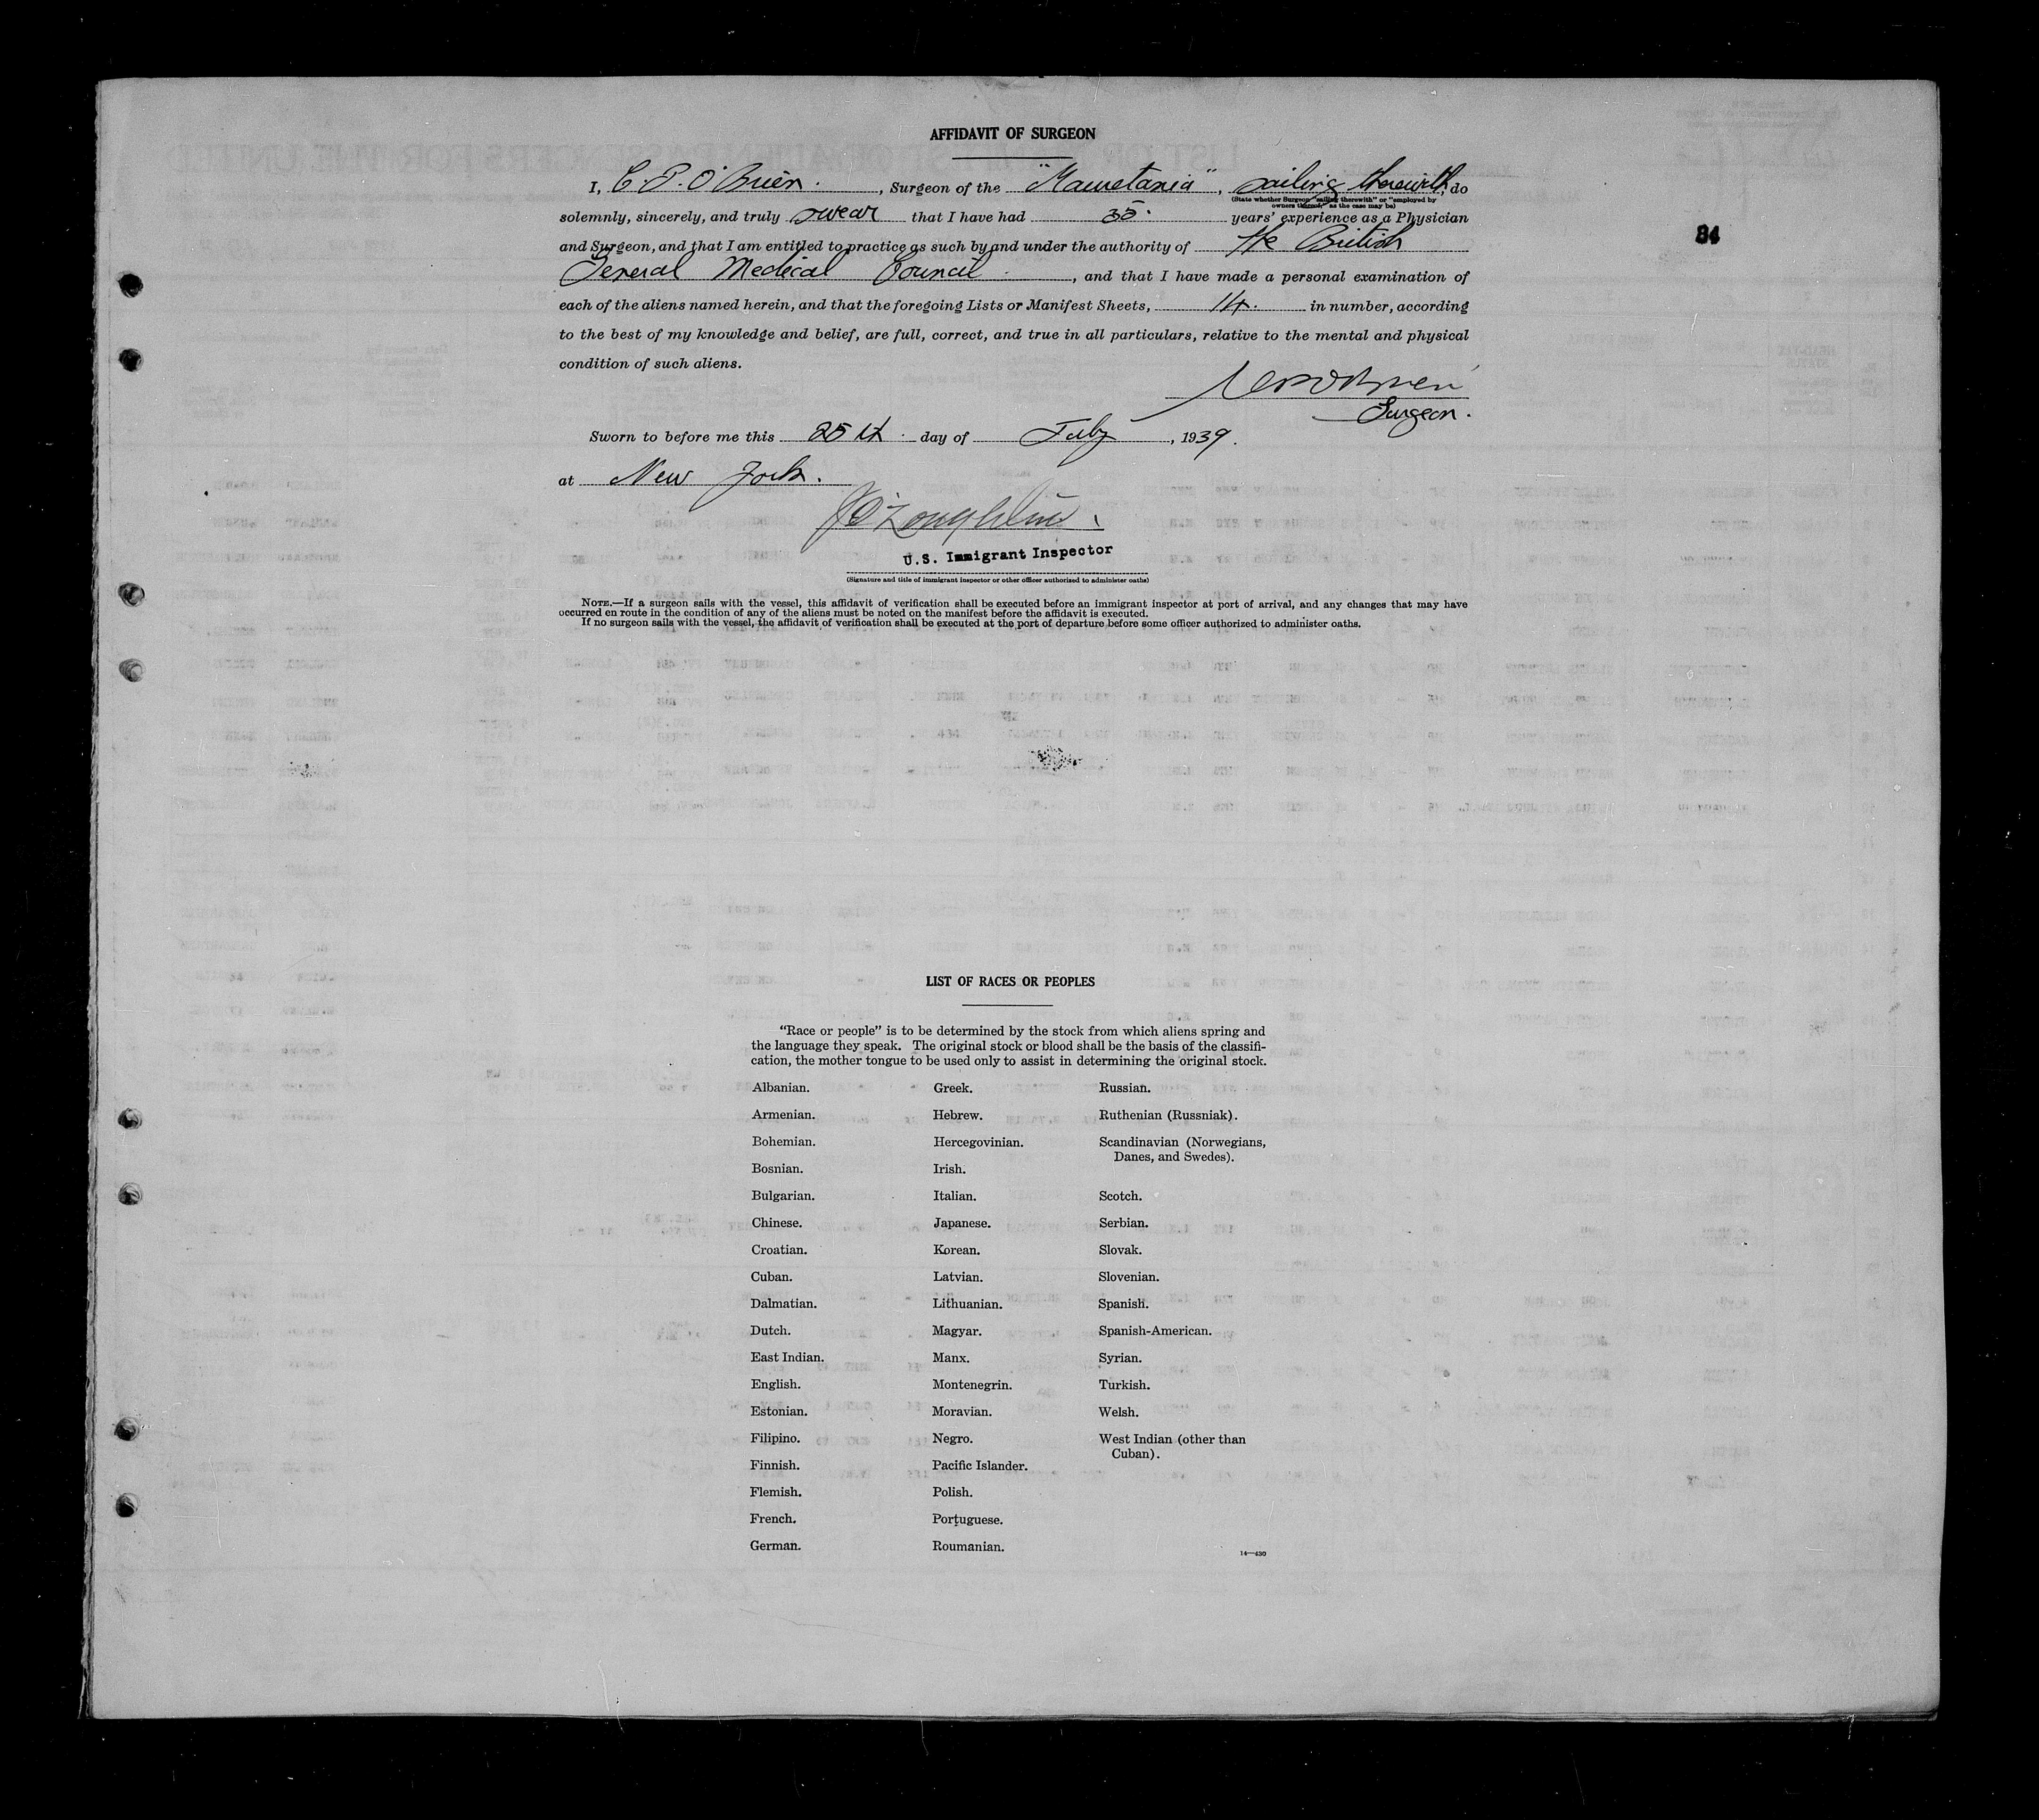 AFFIDAVIT OF SURGEON
84
I, C. P. O'Brien., Surgeon of the "Mauretania", sailing therewith, do
(State whether Surgeon "sailing therewith" or "employed by
owners thereof," as the case may be)
solemnly, sincerely, and truly swear that I have had 35. years' experience as a Physician
and Surgeon, and that I am entitled to practice as such by and under the authority of the British
General Medical Council., and that I have made a personal examination of
each of the aliens named herein, and that the foregoing Lists or Manifest Sheets, 14. in number, according
to the best of my knowledge and belief, are full, correct, and true in all particulars, relative to the mental and physical
condition of such aliens.
Surgeon.
Sworn to before me this 25th day of July, 1939.
at New York.
U.S. Immigrant Inspector
(Signature and title of immigrant inspector or other officer authorized to administer oaths)
NOTE.—If a surgeon sails with the vessel, this affidavit of verification shall be executed before an immigrant inspector at port of arrival, and any changes that may have
occurred en route in the condition of any of the aliens must be noted on the manifest before the affidavit is executed.
If no surgeon sails with the vessel, the affidavit of verification shall be executed at the port of departure before some officer authorized to administer oaths.
LIST OF RACES OR PEOPLES
"Race or people" is to be determined by the stock from which aliens spring and
the language they speak. The original stock or blood shall be the basis of the classifi-
cation, the mother tongue to be used only to assist in determining the original stock.
Albanian.
Armenian.
Bohemian.
Bosnian.
Bulgarian.
Chinese.
Croatian.
Cuban.
Dalmatian.
Dutch.
East Indian.
English.
Estonian.
Filipino.
Finnish.
Flemish.
French.
German.
Greek.
Hebrew.
Hercegovinian.
Irish.
Italian.
Japanese.
Korean.
Latvian.
Lithuanian.
Magyar.
Manx.
Montenegrin.
Moravian.
Negro.
Pacific Islander.
Polish.
Portuguese.
Roumanian.
Russian.
Ruthenian (Russniak).
Scandinavian (Norwegians,
Danes, and Swedes).
Scotch.
Serbian.
Slovak.
Slovenian.
Spanish.
Spanish-American.
Syrian.
Turkish.
Welsh.
West Indian (other than
Cuban).
14—430